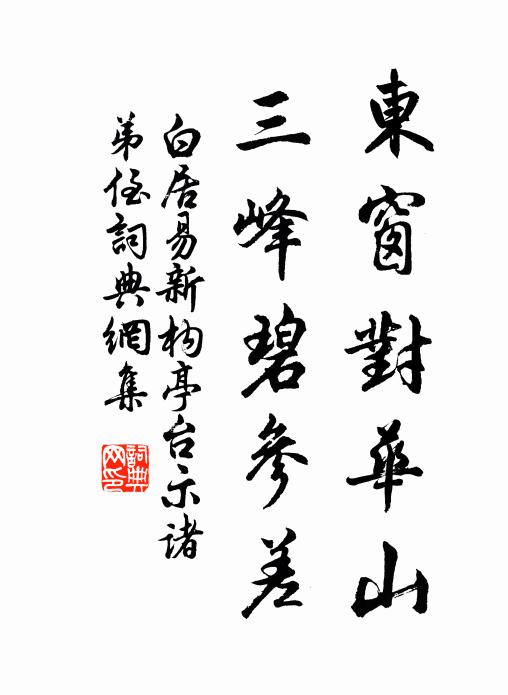 東窗對華山
三峰碧參差
白居易新构亭台示諸
弟侄詞典網集
詞典
网印